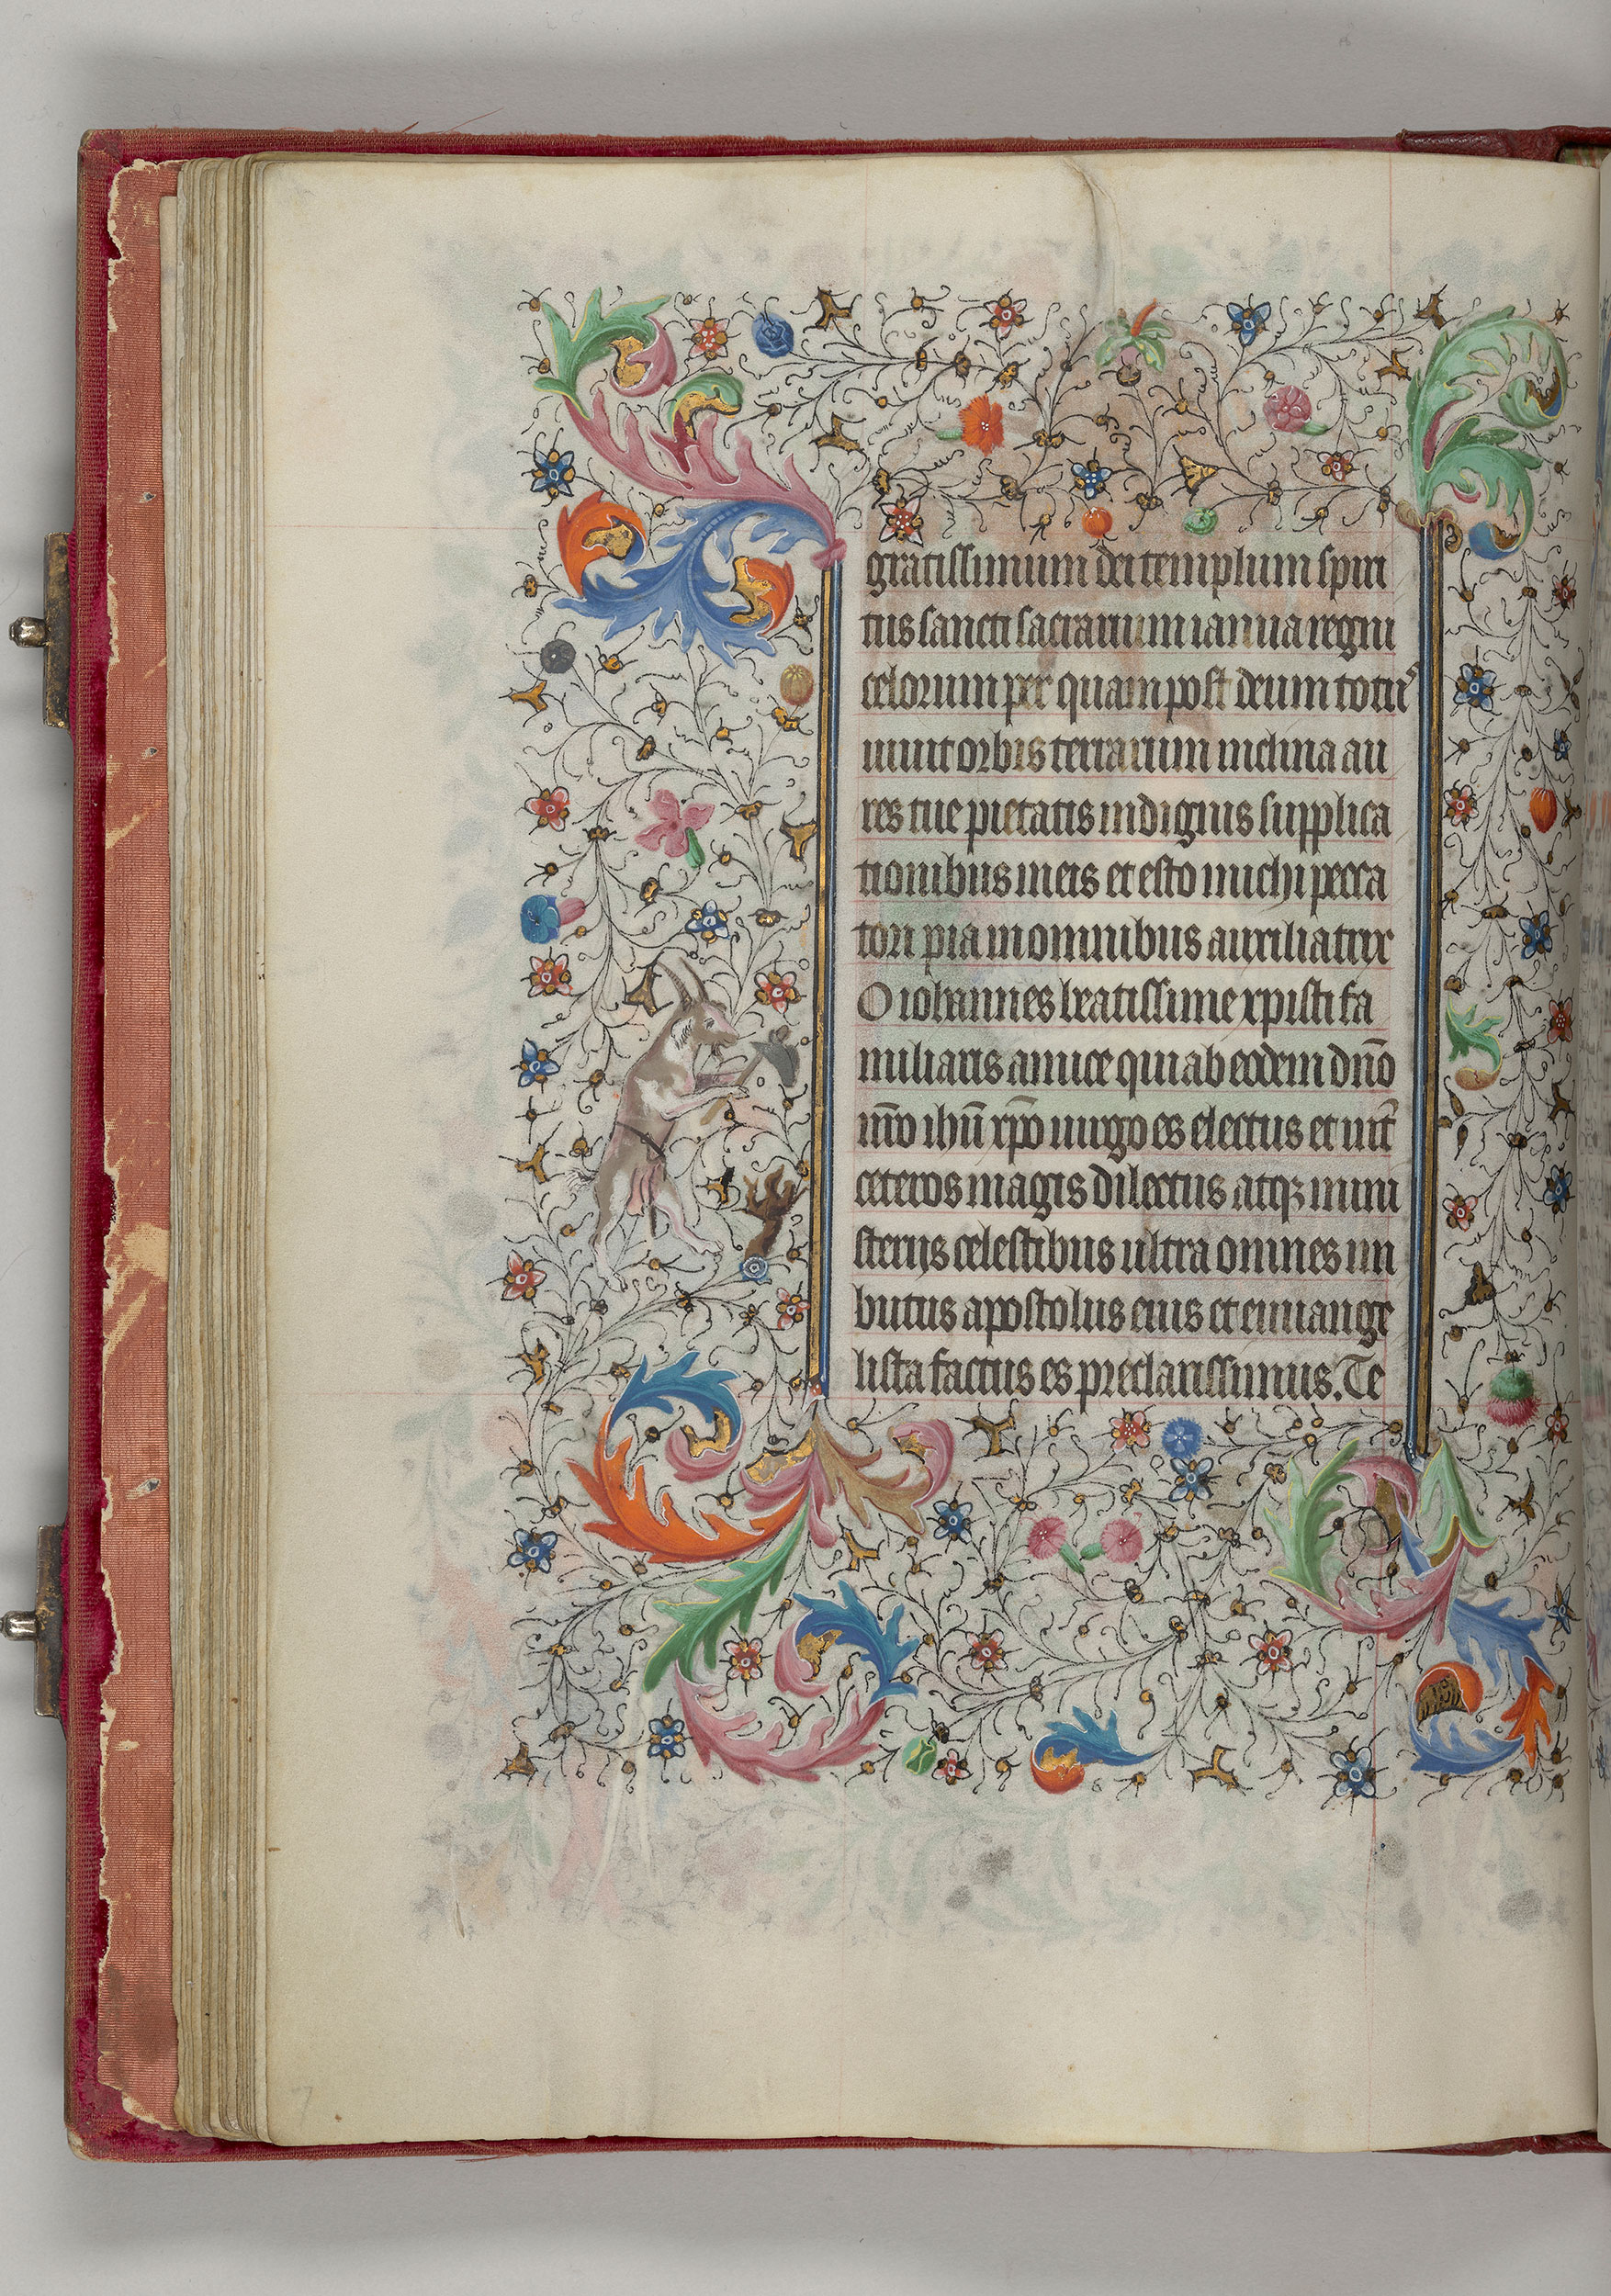 gratissimum dei templum spiri
tus sancti sacrarium ianua regni
celorum per quam post deum totus
uiuit orbis terrarum inclina au
res tue pietatis indignis supplica
tionibus meis et esto michi pecca
tori pia in omnibus auxiliatrix
O iohannes beatissime xpisti fa
miliaris amice qui ab eodem dño
nr̄o ihū xp̄o uirgo es electus et int̄
ceteros magis dilectus atqꝫ mini
sterijs celestibus ultra omnes im
butus apostolus eius et euuange
lista factus es preclarissimus. Te